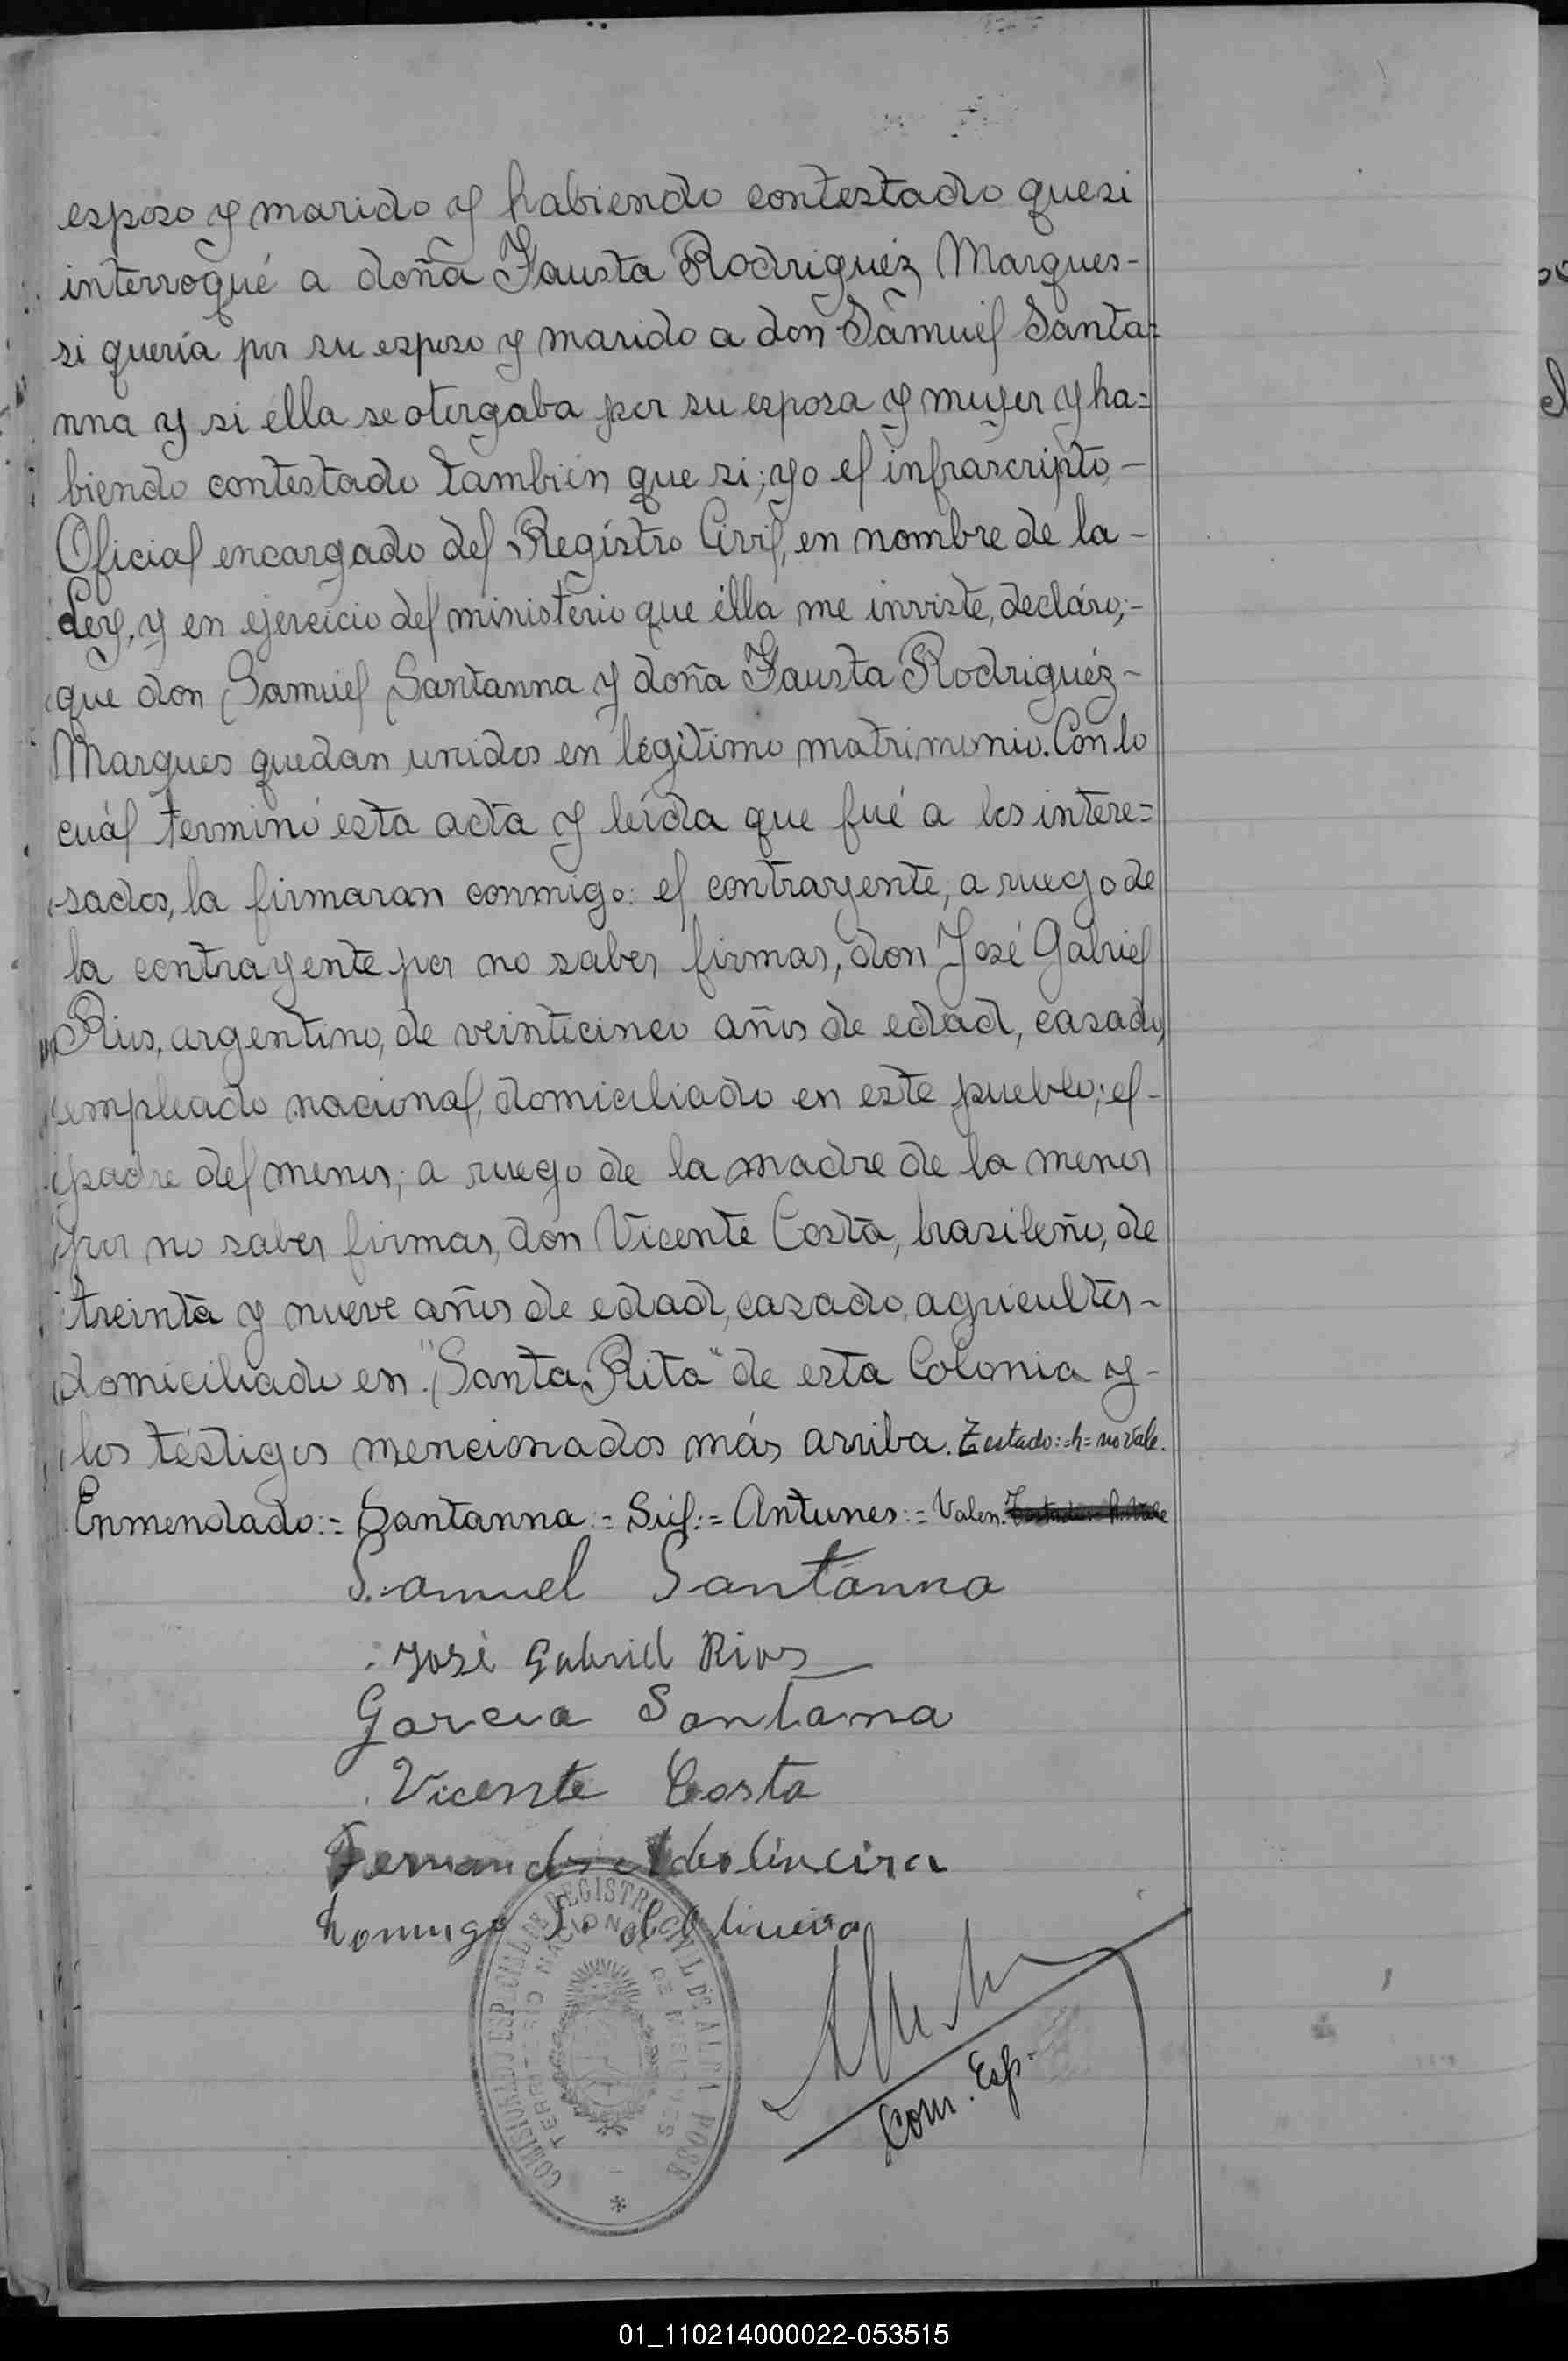 esposo y marido y habiendo contestado que si
interrogué a doña Fausta Rodriguéz Marques-
si quería por su esposo y marido a don Samuel Santa=
nna y si ella se otorgaba por su esposa y mujer y ha=
biendo contestado tambien que si; yo el infrascripto-
Oficial encargado del Registro Civil, en nombre de la-
Ley, y en ejercicio del ministerio que élla me inviste, decláro;-
que don Samuel Santanna y doña Fausta Rodriguéz-
Marques quedan unidos en legítimo matrimonio. Con lo
cuál terminó esta acta y leída que fué a los intere=
sados, la firmaran conmigo: el contrayente; a ruego de
la contrayente por no saber firmar, don José Gabriel
Rios, argentino, de veinticinco años de edad, casado,
empleado nacional, domiciliado en este pueblo; el-
padre del menor; a ruego de la madre de la menor
por no saber firmar, don Vicente Costa, brasileño, de
treinta y nueve años de edad, casado, agricultor-
domiciliado en "Santa Rita" de esta Colonia y-
los testigos mencionados más arriba. Testado:=h=no vale.
Enmendado:= Santanna:= Sil:= Antunes:= Valen.
Samuel Santanna
José Gabriel Rios
Garcia Santana
Vicente Costa
Fernando
Domingo
COMISIONADO ESPECIAL DE REGISTRO CIVIL DE ALBA POSSE
TERRITORIO NACIONAL DE MISIONES
Com. Esp.
01_110214000022-053515